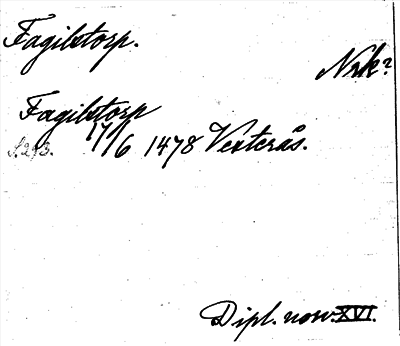 Fagilstorp.
Nrk?
Fagilstorp
S. 293. 17/6 1478 Vesterås.
Dipl. norv. XVI.